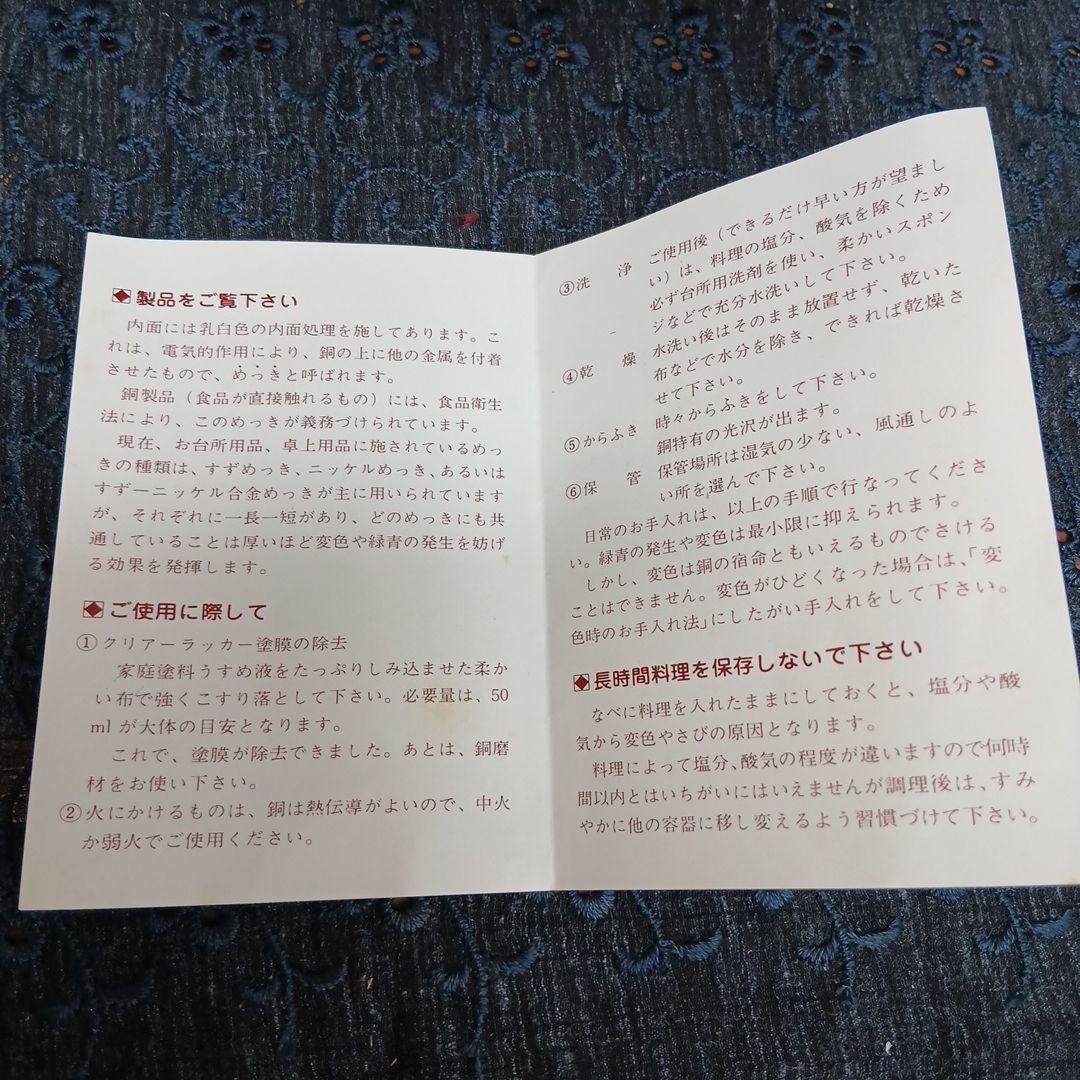 製品をご覧下さい
内面には乳白色の内面処理を施してあります。こ
れは、電気的作用により、銅の上に他の金属を付着
させたもので、めっきと呼ばれます。
銅製品（食品が直接触れるもの）には、食品衛生
法により、このめっきが義務づけられています。
現在、お台所用品、卓上用品に施されているめっ
きの種類は、すずめっき、ニッケルめっき、あるいは
すず－ニッケル合金めっきが主に用いられています
が、それぞれに一長一短があり、どのめっきにも共
通していることは厚いほど変色や緑青の発生を妨げ
る効果を発揮します。
ご使用に際して
①クリアーラッカー塗膜の除去
家庭塗料うすめ液をたっぷりしみ込ませた柔か
い布で強くこすり落として下さい。必要量は、50
mlが大体の目安となります。
これで、塗膜が除去できました。あとは、銅磨
材をお使い下さい。
②火にかけるものは、銅は熱伝導がよいので、中火
か弱火でご使用ください。
③洗浄 ご使用後（できるだけ早い方が望まし
い）は、料理の塩分、酸気を除くため
必ず台所用洗剤を使い、柔かいスポン
ジなどで充分水洗いして下さい。
④乾燥 水洗い後はそのまま放置せず、乾いた
布などで水分を除き、できれば乾燥さ
せて下さい。
⑤からふき 時々からふきをして下さい。
銅特有の光沢が出ます。
⑥保管 保管場所は湿気の少ない、風通しのよ
い所を選んで下さい。
日常のお手入れは、以上の手順で行なってくださ
い。緑青の発生や変色は最小限に抑えられます。
しかし、変色は銅の宿命ともいえるものでさける
ことはできません。変色がひどくなった場合は、「変
色時のお手入れ法」にしたがい手入れをして下さい。
長時間料理を保存しないで下さい
なべに料理を入れたままにしておくと、塩分や酸
気から変色やさびの原因となります。
料理によって塩分、酸気の程度が違いますので何時
間以内とはいちがいにはいえませんが調理後は、すみ
やかに他の容器に移し変えるよう習慣づけて下さい。